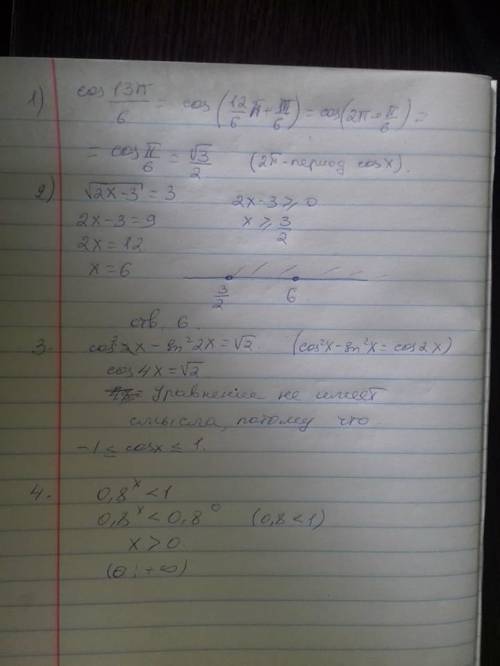 1) cos 13π/6 = cos(12/6 π + π/6) = cos(2π + π/6) =
= cos π/6 = √3/2 (2π - период cos x).
2) √(2x-3) = 3 2x-3 ≥ 0
2x-3=9 x ≥ 3/2
2x = 12
x = 6
3/2 6
отв. 6.
3. cos²2x - sin²2x = √2. (cos²x - sin²x = cos2x)
cos4x = √2
Уравнение не имеет
смысла, потому что
-1 ≤ cosx ≤ 1.
4. 0,8^x < 1
0,8^x < 0,8^0 (0,8 < 1)
x > 0.
(0; +∞)